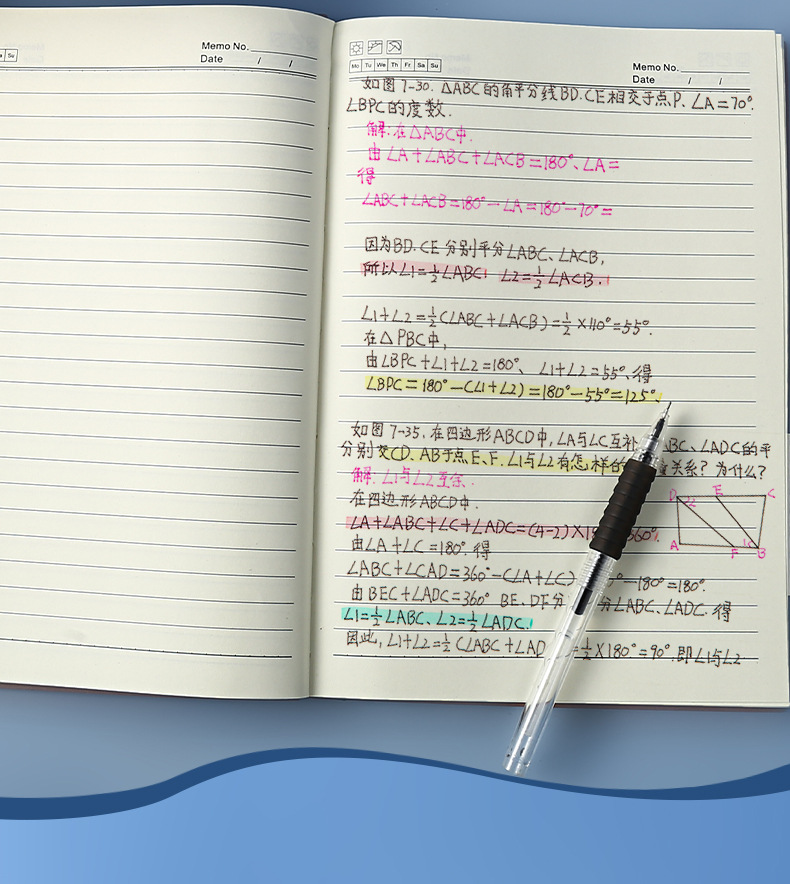 Su
Memo No.
Date / /
Mo Tu We Th Fr Sa Su
Memo No.
Date / /
如图7-30.△ABC的角平分线BD.CE相交于点P.∠A=70°.
∠BPC的度数.
解:在△ABC中.
由∠A+∠ABC+∠ACB=180°、∠A=
得
∠ABC+∠ACB=180°-∠A=180°-70°=
因为BD.CE分别平分∠ABC、∠ACB,
所以∠1=½∠ABC! ∠2=½∠ACB.!
∠1+∠2=½(∠ABC+∠ACB)=½×110°=55°.
在△PBC中,
由∠BPC+∠1+∠2=180°、∠1+∠2=55°.得
∠BPC=180°-(∠1+∠2)=180°-55°=125°.
如图7-35.在四边形ABCD中,∠A与∠C互补 BC、∠ADC的平
分别交CD.AB于点E、F.∠1与∠2有怎样的 关系?为什么?
解:∠1与∠2互余.
在四边形ABCD中.
∠A+∠ABC+∠C+∠ADC=(4-2)×18 360°.
由∠A+∠C=180°.得
∠ABC+∠CAD=360°-(∠A+∠C) °-180°=180°.
由BEC+∠ADC=360° BE、DF分 分∠ABC、∠ADC.得
∠1=½∠ABC、∠2=½∠ADC.!
因此,∠1+∠2=½(∠ABC+∠AD =½×180°=90°.即∠1与∠2
D 2 E C
A F 1 B